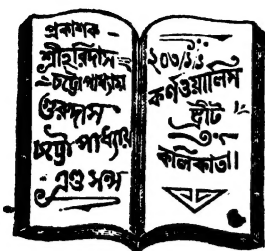 প্রকাশক —
শ্রীহরিদাস
চট্টোপাধ্যায়
গুরুদাস
চট্টোপাধ্যায়
এণ্ড সন্স
২০৩/১/১
কর্ণওয়ালিস
ষ্ট্রীট
কলিকাতা।।